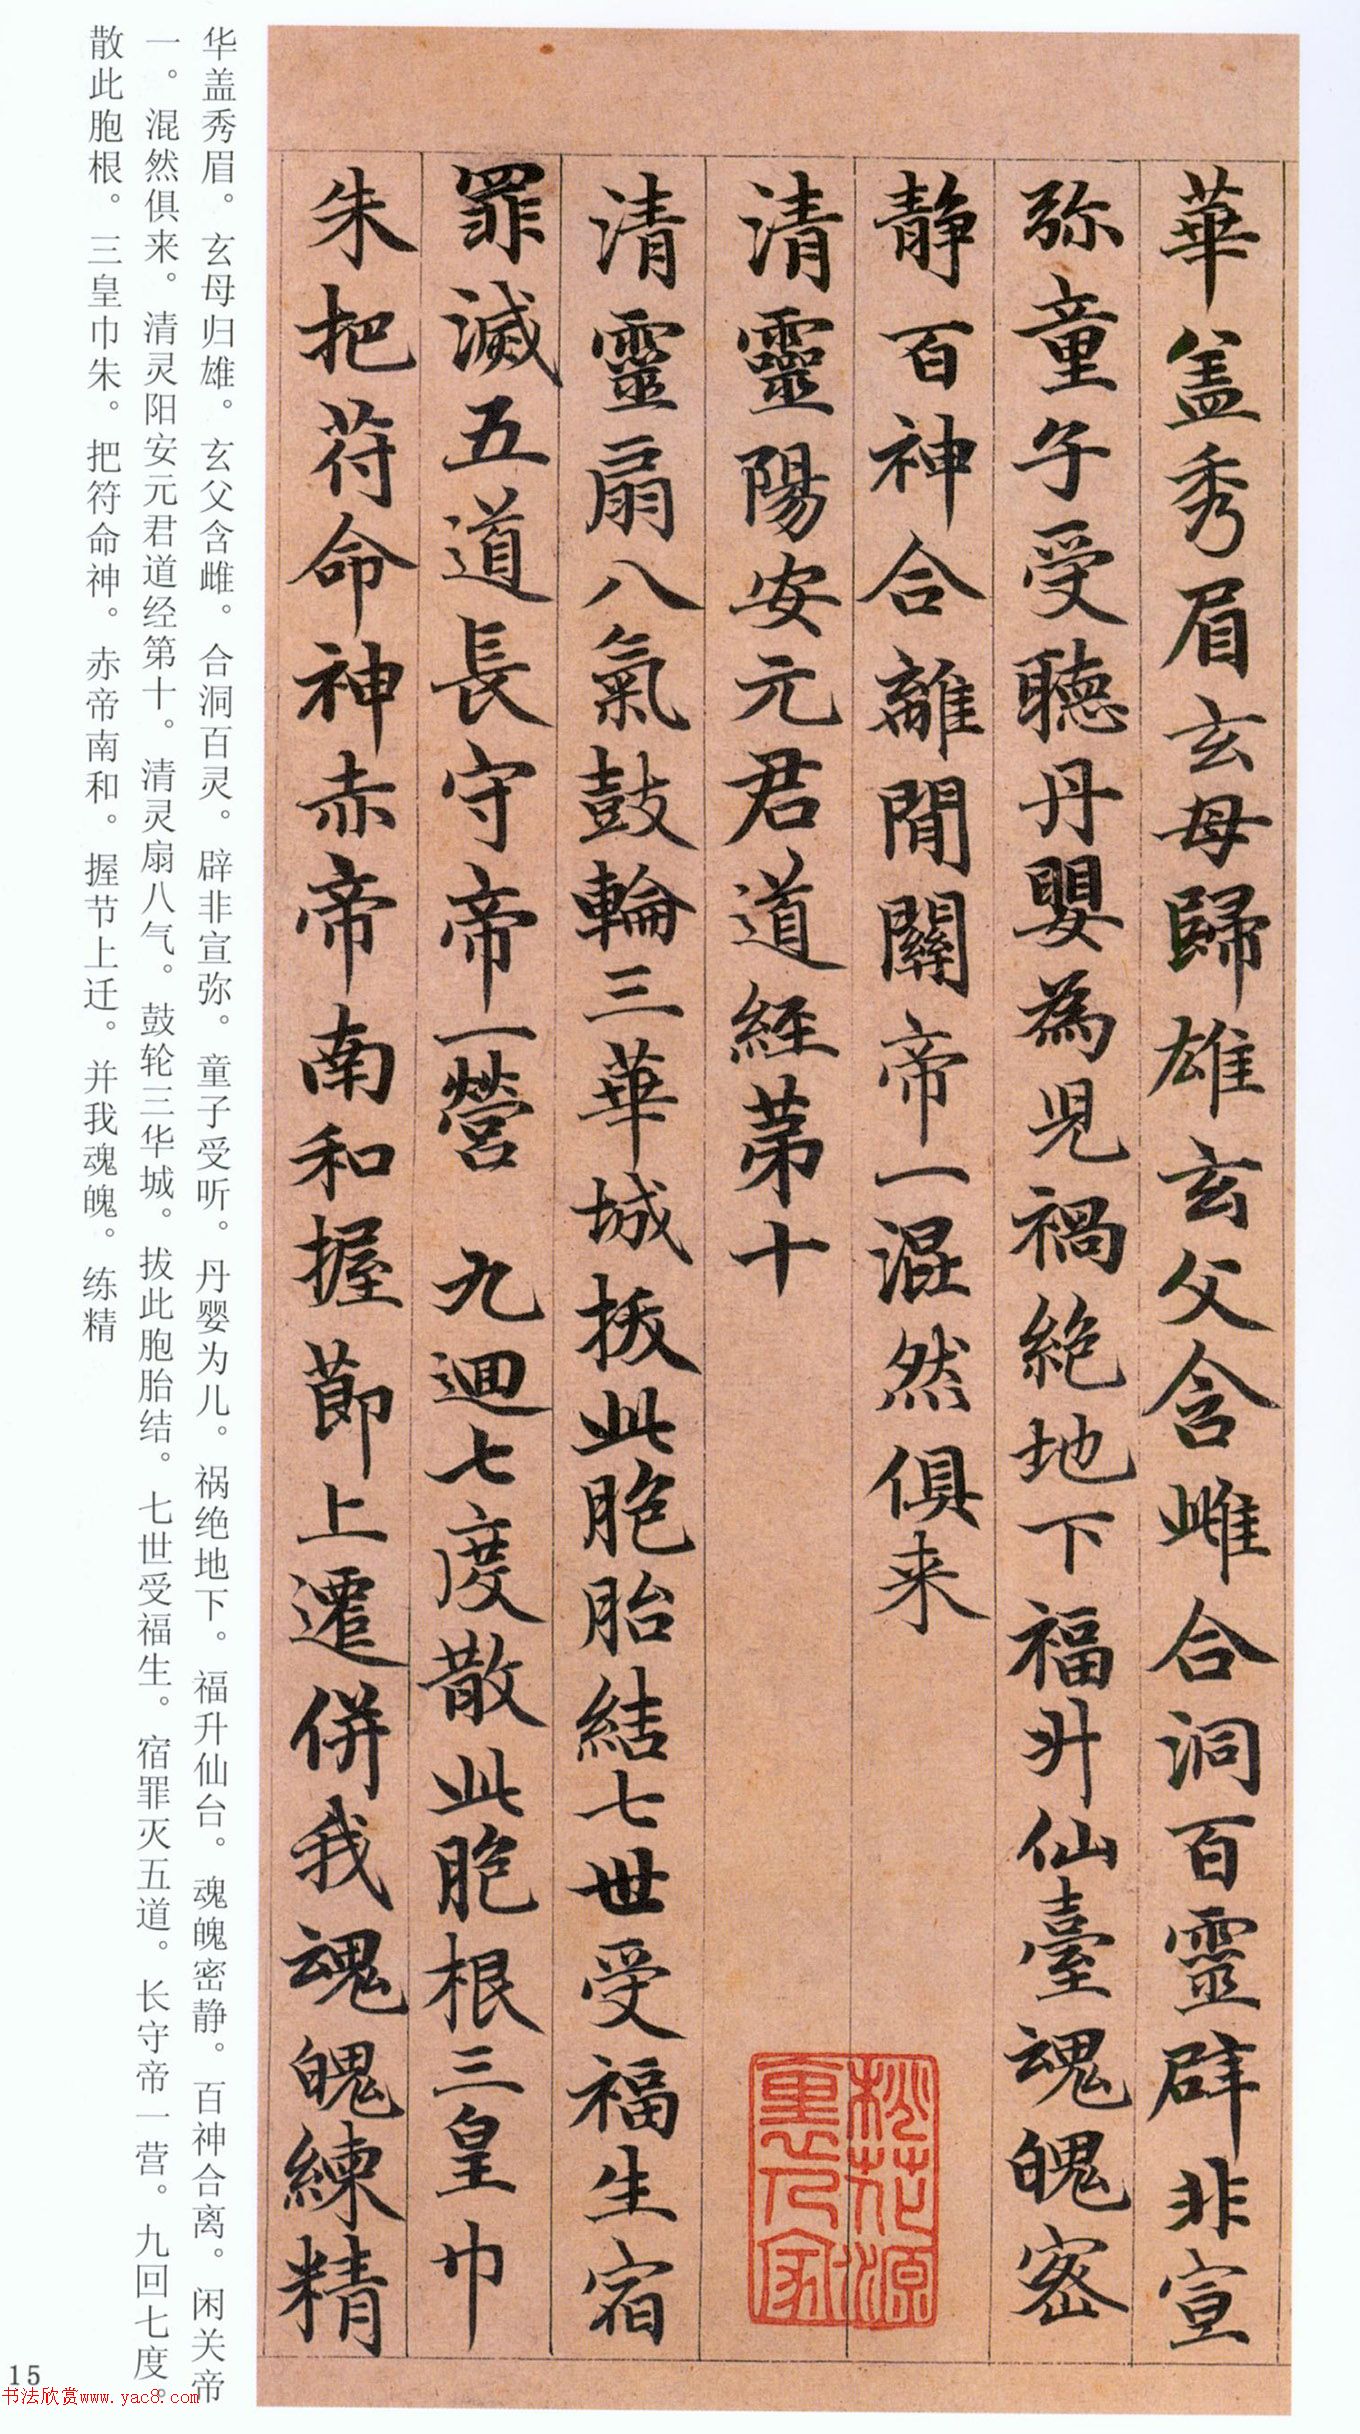 華盖秀眉玄母歸雄玄父含雌合洞百靈辟非宣
弥童子受聽丹嬰為児禍絶地下福升仙臺魂魄密
静百神合離閒關帝一混然俱来
清靈陽安元君道経苐十
清靈扇八氣鼓輪三華城拔此胞胎結七世受福生宿
罪滅五道長守帝一營 九迴七度散此胞根三皇巾
朱把苻命神赤帝南和握莭上遷併我魂魄練精
桃花源
里人家
华盖秀眉。玄母归雄。玄父含雌。合洞百灵。辟非宣弥。童子受听。丹婴为儿。祸绝地下。福升仙台。魂魄密静。百神合离。闲关帝
一。混然俱来。清灵阳安元君道经第十。清灵扇八气。鼓轮三华城。拔此胞胎结。七世受福生。宿罪灭五道。长守帝一营。九回七度。
散此胞根。三皇巾朱。把符命神。赤帝南和。握节上迁。并我魂魄。练精
15
书法欣赏www.yac8.com